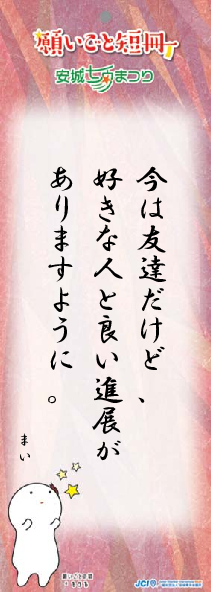 願いごと短冊
安城七夕まつり
今は友達だけど、
好きな人と良い進展が
ありますように。
まい
願いごと短冊
JCI